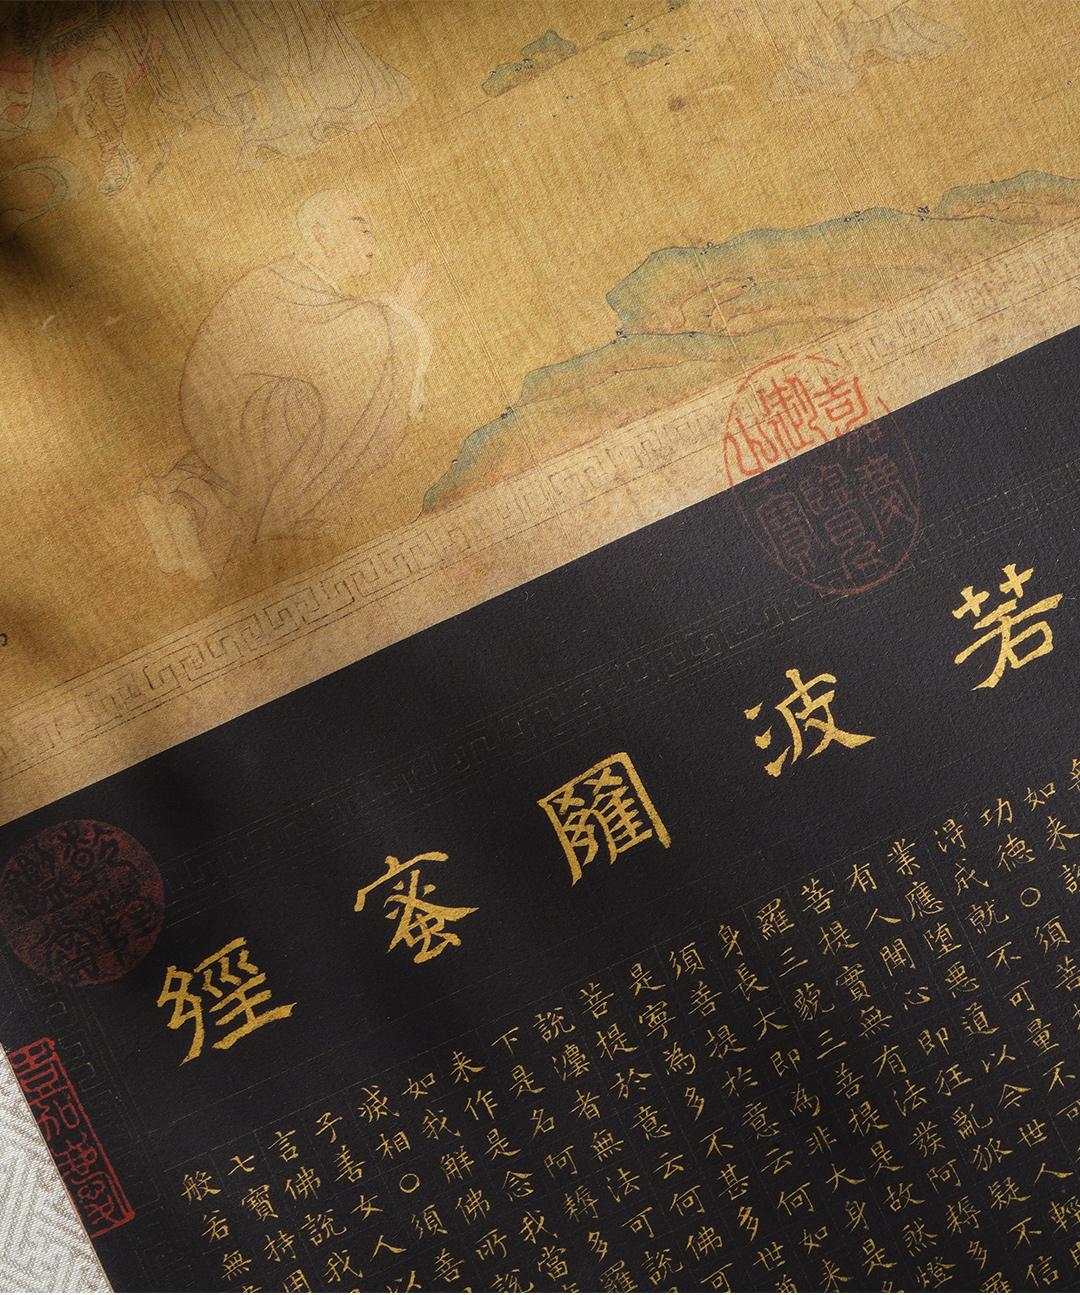 若波羅蜜經
如来說
功德○須菩
得成就不可量不可
業應墮惡道以今世人輕
有人聞心即狂亂狐疑不信
菩提實無有法發阿耨多羅
羅三藐三菩提是故然燈
身長大即為非大身是
須菩提於意云何如来
是寧為多不甚多世尊
菩提於意云何佛可
說法者無法可說
下是名阿耨多羅
来作是念我當
如我解佛所說
滅相○須菩
子善女人以
言佛說我
七寶持用
般若無